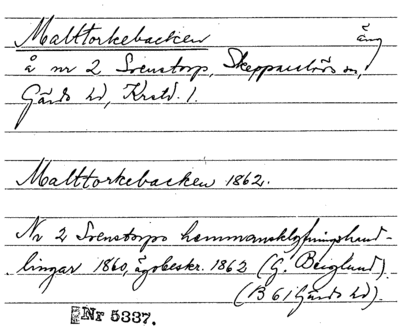 Malttorkebacken äng
å nr 2 Svenstorp, Skepparslövs sn,
Gärds hd, Krstd. l.
Malttorkebacken 1862.
Nr 2 Svenstorps hemmansklyfningshand-
lingar 1860, ägobeskr. 1862 (G. Berglund).
(B 61 Gärds hd).
Nr 5337.